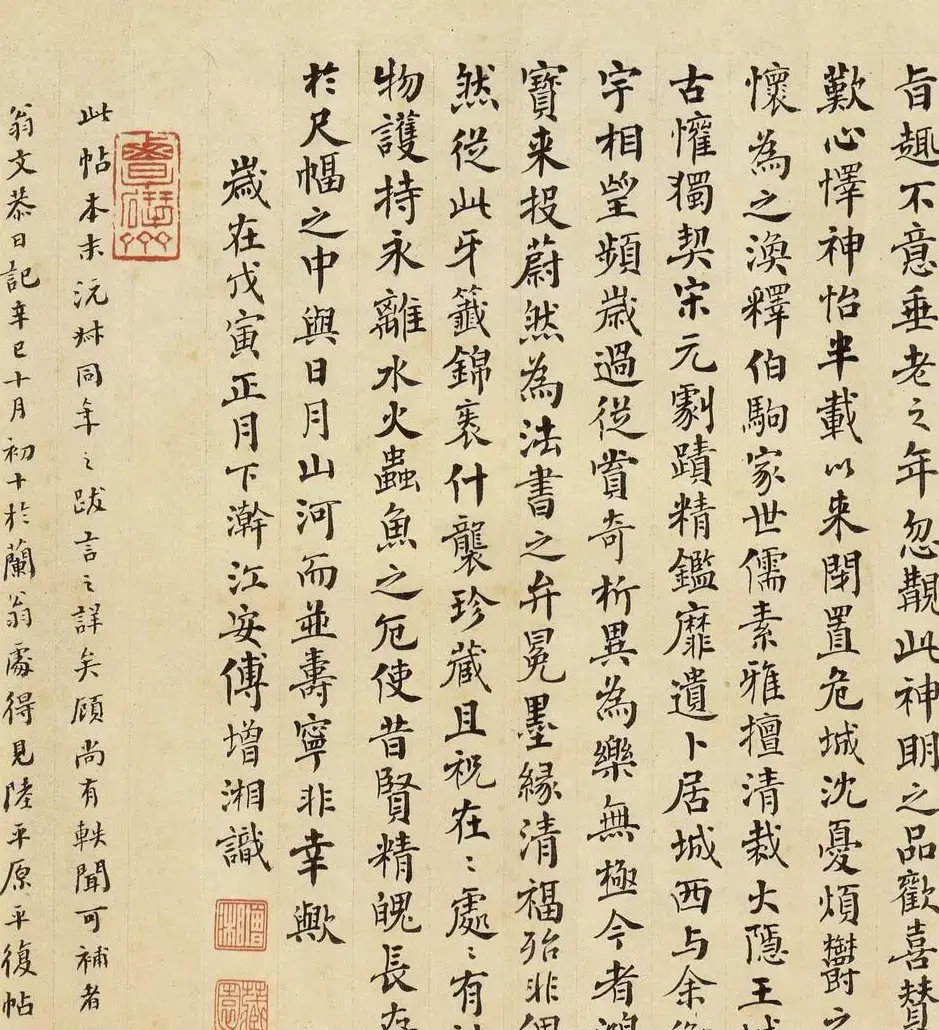 旨趣不意垂老之年忽覩此神明之品歡喜贊
歎心懌神怡半載以来閉置危城沈憂煩鬱之
懷為之渙釋伯駒家世儒素雅擅清裁大隱王城
古懽獨契宋元劇蹟精鑑靡遺卜居城西与余衡
宇相望頻歲過從賞奇析異為樂無極今者鴻
寶来投蔚然為法書之弁冕墨緣清福殆非偶
然從此牙籤錦裹什襲珍藏且祝在〻處〻有神
物護持永離水火蟲魚之厄使昔賢精魄長存
於尺幅之中與日月山河而並壽寧非幸歟
歲在戊寅正月下澣江安傅增湘識
增湘
此帖本末沅叔同年之跋言之詳矣顧尚有軼聞可補者
翁文恭日記辛巳十月初十於蘭翁處得見陸平原平復帖